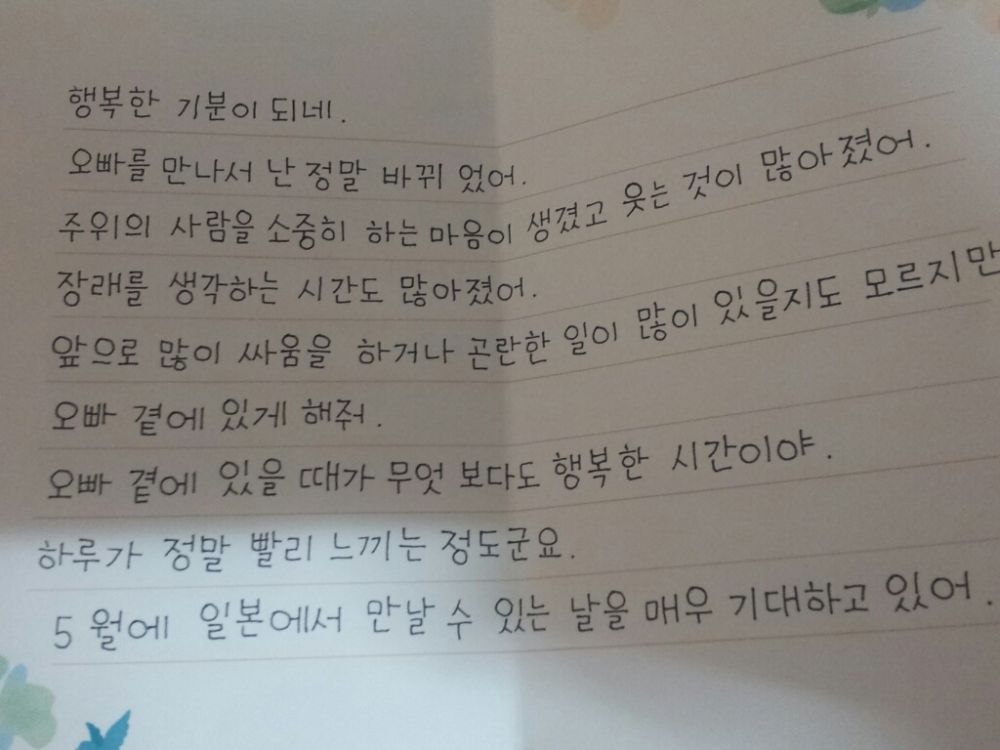 행복한 기분이 되네.
오빠를 만나서 난 정말 바뀌 었어.
주위의 사람을 소중히 하는 마음이 생겼고 웃는 것이 많아졌어.
장래를 생각하는 시간도 많아졌어.
앞으로 많이 싸움을 하거나 곤란한 일이 많이 있을지도 모르지만
오빠 곁에 있게 해줘.
오빠 곁에 있을 때가 무엇 보다도 행복한 시간이야.
하루가 정말 빨리 느끼는 정도군요.
5월에 일본에서 만날 수 있는 날을 매우 기대하고 있어.